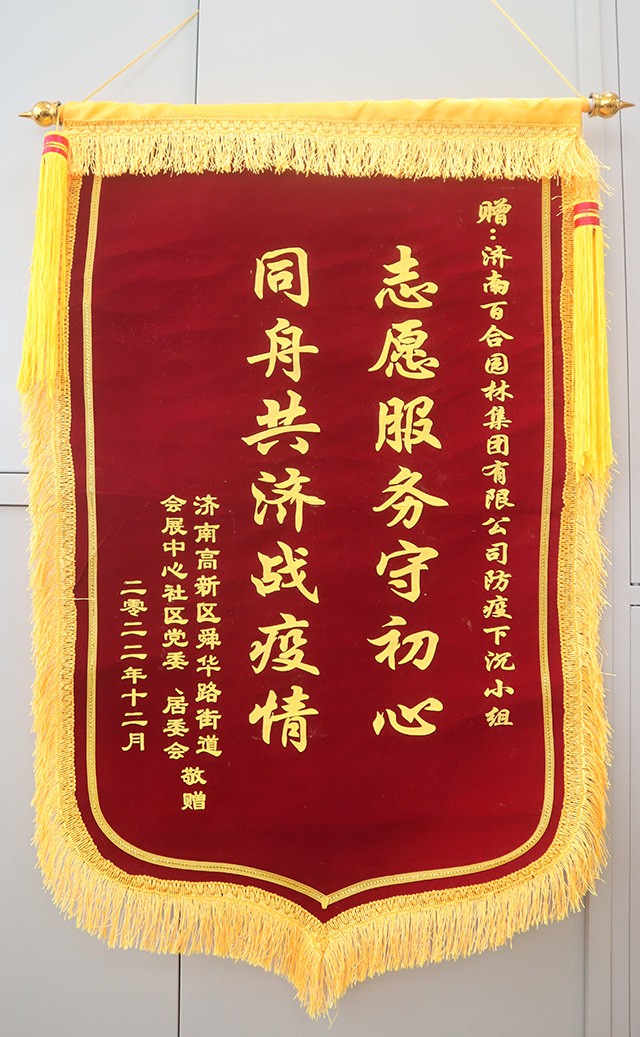 赠：济南百合园林集团有限公司防疫下沉小组
志愿服务守初心
同舟共济战疫情
济南高新区舜华路街道
会展中心社区党委、居委会
敬赠
二零二二年十二月